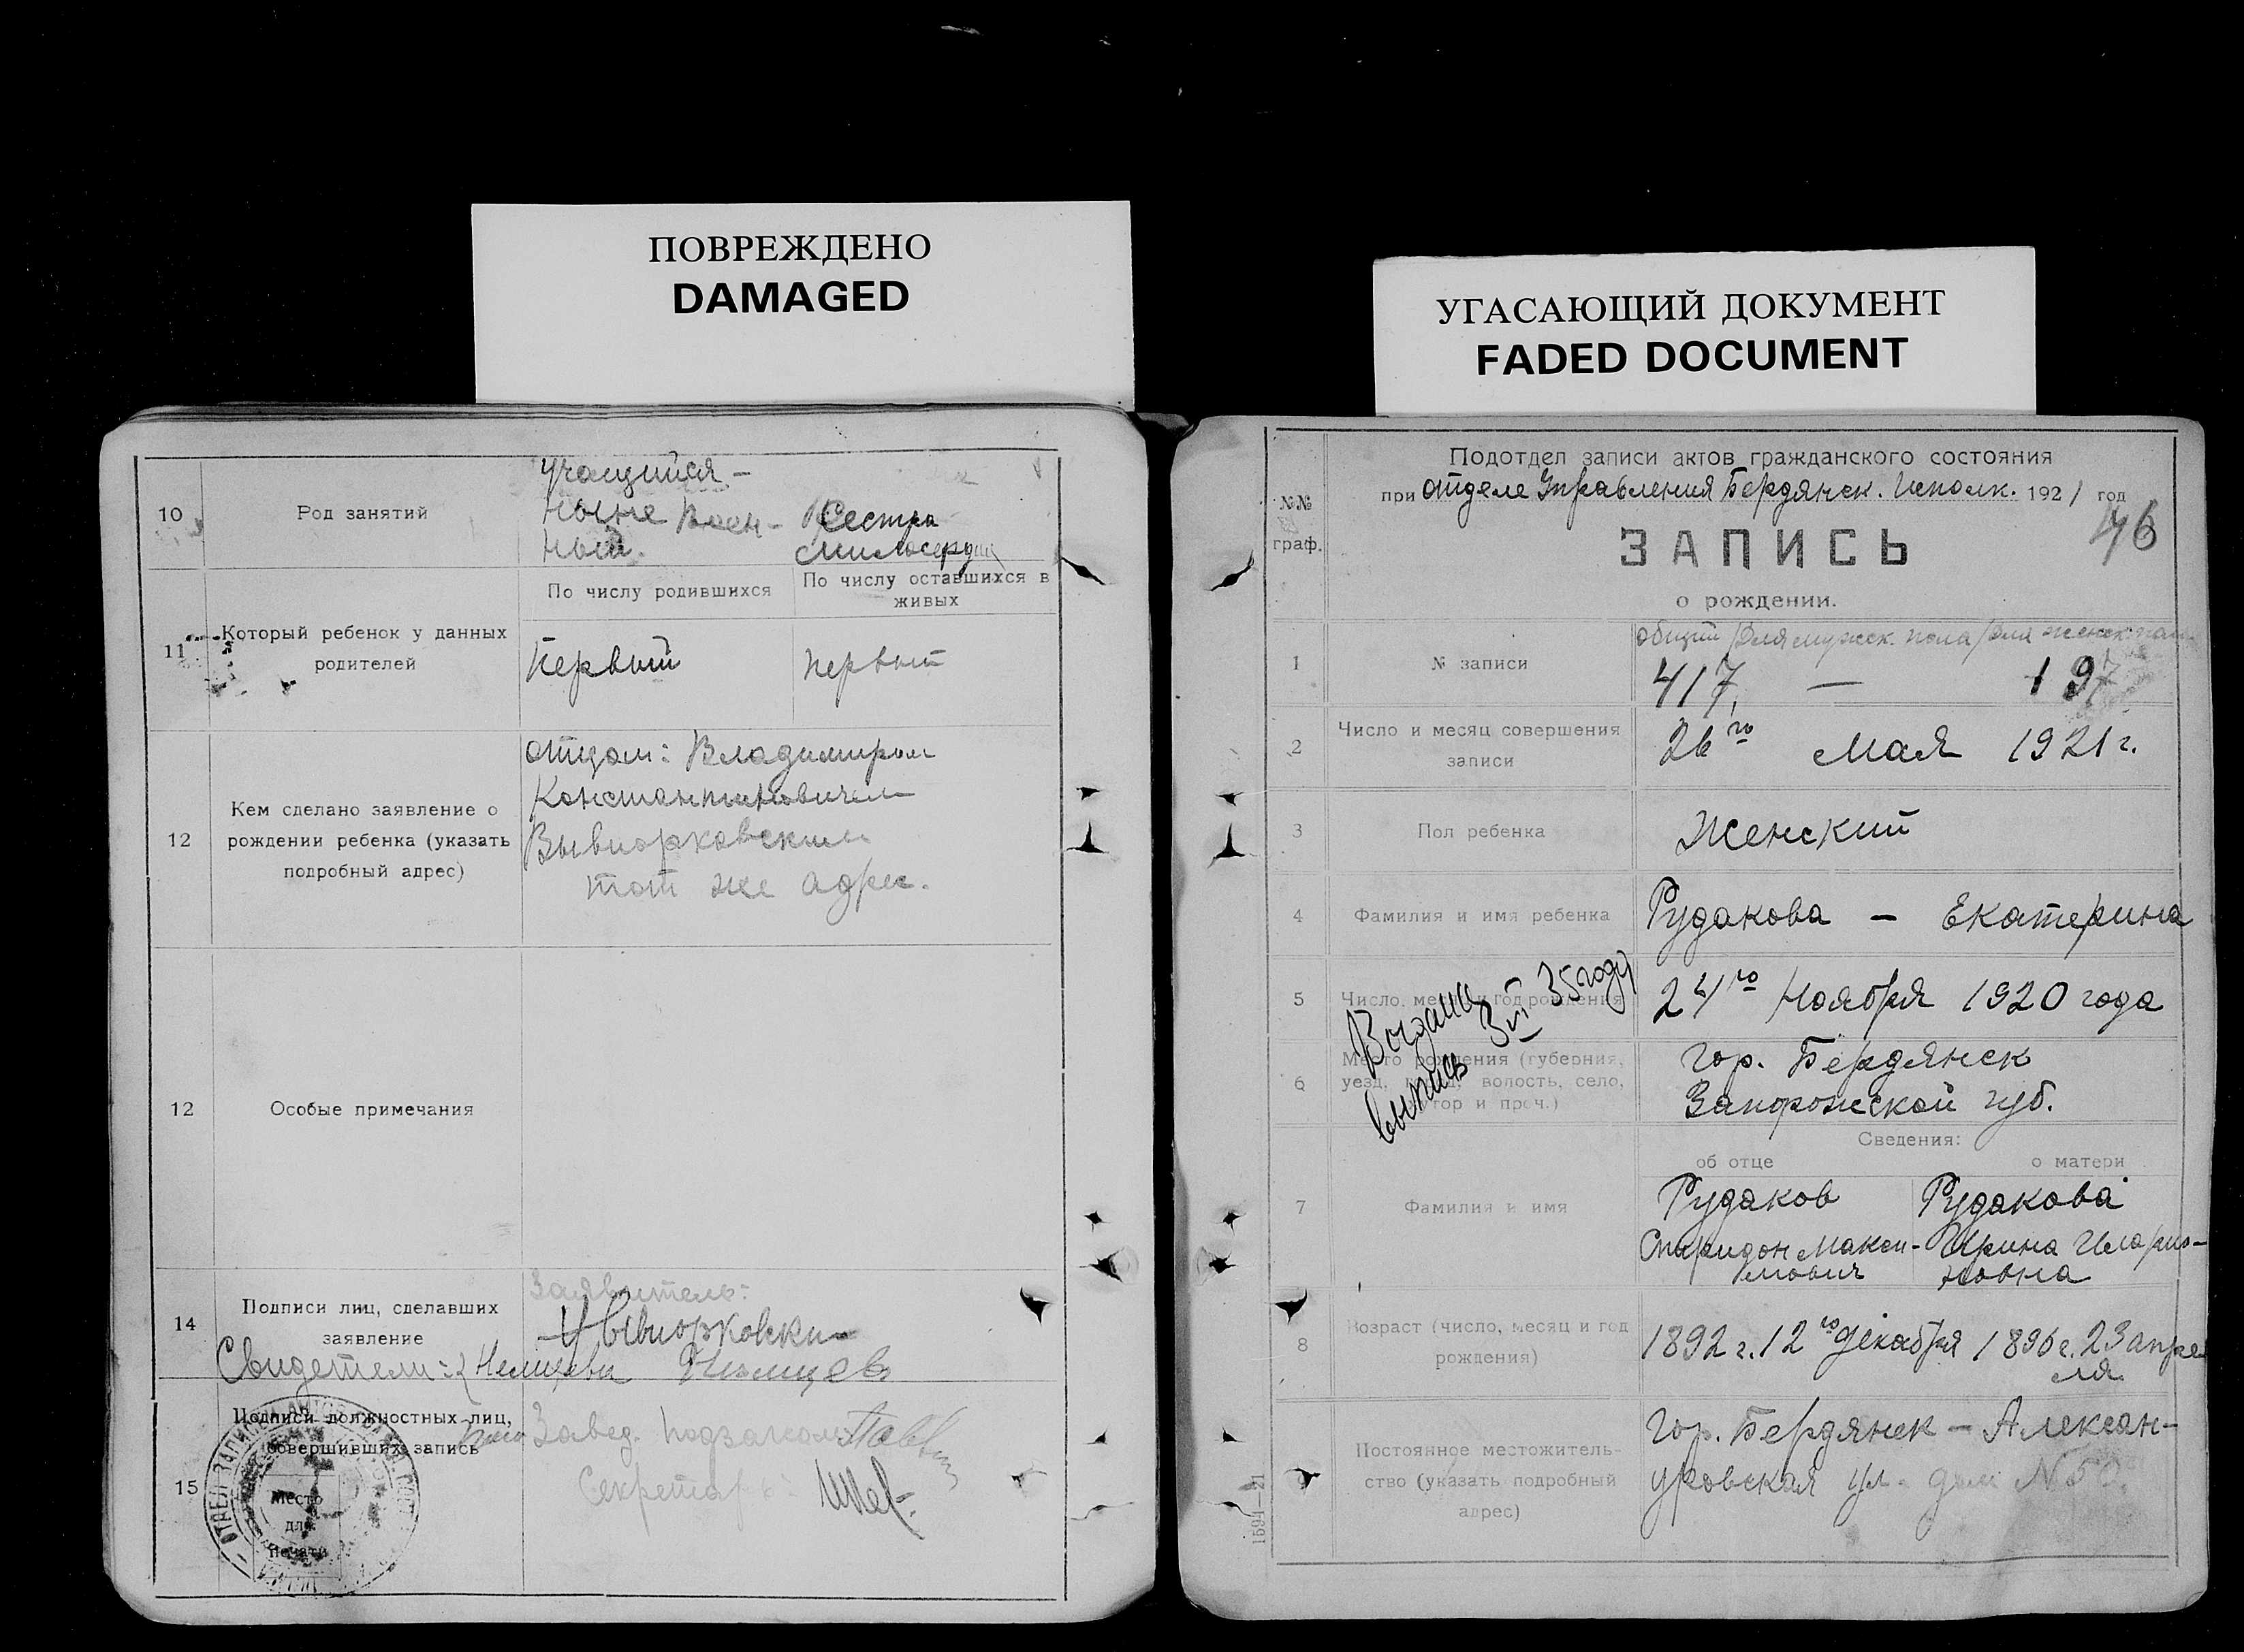 ПОВРЕЖДЕНО
DAMAGED
10
Род занятий
учащийся -
ныне воен-
ный.
Сестра
милосердия
11
Который ребенок у данных
родителей
По числу родившихся
По числу оставшихся в
живых
Первый
первый
12
Кем сделано заявление о
рождении ребенка (указать
подробный адрес)
отцом: Владимиром
Константиновичем
Вывиорковским
тот же адрес.
12
Особые примечания
14
Подписи лиц, сделавших
заявление
Заявитель:
Вывиорковски
Свидетели:
15
Подписи должностных лиц,
совершивших запись
Место
для
печати
Завед. подзагсом
Секретарь:
УГАСАЮЩИЙ ДОКУМЕНТ
FADED DOCUMENT
№№
граф.
Подотдел записи актов гражданского состояния
при отделе Управления Бердянск. Исполк. 1921 год
46
ЗАПИСЬ
о рождении.
1
№ записи
общий / для мужск. пола / для женск. пола
417, — 197
2
Число и месяц совершения
записи
26го Мая 1921 г.
3
Пол ребенка
Женский
4
Фамилия и имя ребенка
Рудакова — Екатерина
5
Число, месяц и год рождения
24го Ноября 1920 года
Выдана
выпись 3/VI 35 году
6
Место рождения (губерния,
уезд, волость, село,
хутор и проч.)
гор. Бердянск
Запорожской губ.
Сведения:
об отце
о матери
7
Фамилия и имя
Рудаков
Спиридон Макси-
мович
Рудакова
Ирина Иларио-
новна
8
Возраст (число, месяц и год
рождения)
1892 г. 12го декабря
1896 г. 23 апре
ля
9
Постоянное местожитель-
ство (указать подробный
адрес)
гор. Бердянск — Алексан-
дровская ул. дом N 50.
1594—21